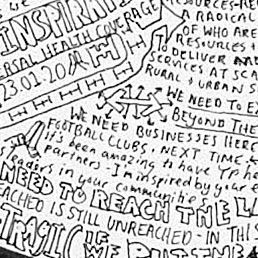 INSPIRATI
RSAL HEALTH COVERAGE
23.01.20
RESOURCES-RE
A RADICAL
OF WHO ARE
RESOURCES +
TO DELIVER
SERVICES AT SCA
RURAL & URBAN S
WE NEED TO EX
BEYOND THE
WE NEED BUSINESSES HERE
FOOTBALL CLUBS, NEXT TIME.
it's been amazing to have YP he
partners - I'm inspired by your e
leaders in your communitie
NEED TO REACH THE LA
REACHED IS STILL UNREACHED - IN THIS
TRASTIC IF
WE PUT THE